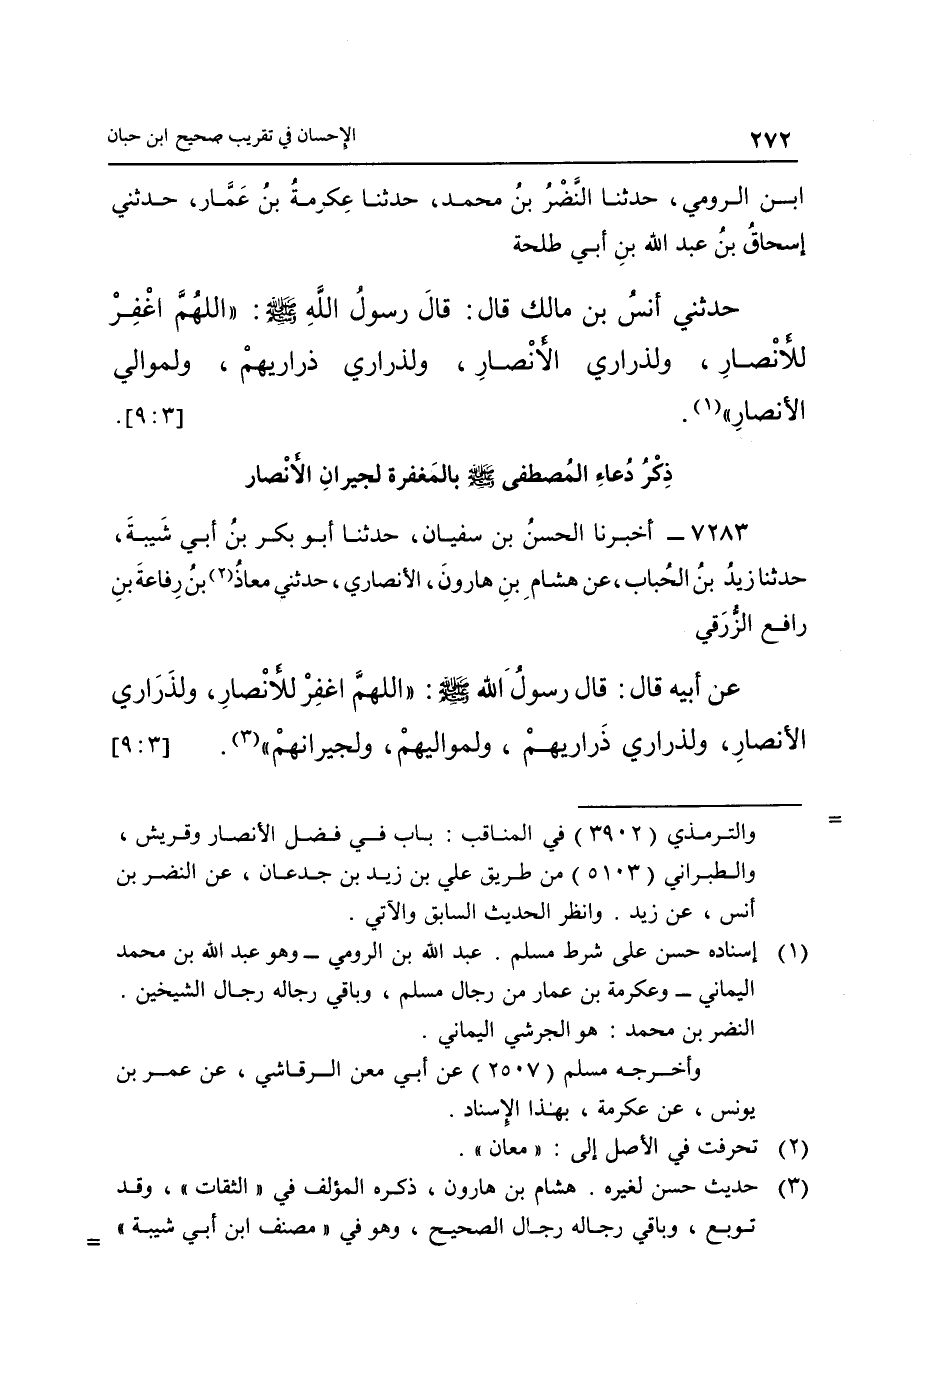 ٢٧٢ الإحسان في تقريب صحيح ابن حبان
ابن الرومي، حدثنا النَّضْرُ بنُ محمد، حدثنا عِكرمةُ بنُ عَمَّار، حدثني
إسحاقُ بنُ عبد الله بنِ أبي طلحة
حدثني أنسُ بن مالك قال: قالَ رسولُ اللَّهِ ﷺ: «اللهُمَّ اغْفِرْ
للأَنْصارِ، ولذراري الأَنْصارِ، ولذراري ذراريهمْ، ولموالي
الأنصارِ»(١). [٩:٣].
ذِكْرُ دُعاءِ المُصطفى ﷺ بالمَغفرة لجيرانِ الأَنْصار
٧٢٨٣ ـ أخبرنا الحسنُ بن سفيان، حدثنا أبو بكر بنُ أبي شَيبةَ،
حدثنا زيدُ بنُ الحُباب، عن هشامِ بنِ هارونَ، الأنصاري، حدثني معاذُ(٢) بنُ رِفاعةَ بنِ
رافع الزُّرَقي
عن أبيه قال: قال رسولُ الله ﷺ: «اللهمَّ اغفِرْ للأَنْصارِ، ولذَرَاري
الأنصارِ، ولذراري ذَراريهمْ، ولمواليهمْ، ولجيرانهمْ»(٣). [٩:٣]
=
والترمذي (٣٩٠٢) في المناقب: باب في فضل الأنصار وقريش،
والطبراني (٥١٠٣) من طريق علي بن زيد بن جدعان، عن النضر بن
أنس، عن زيد. وانظر الحديث السابق والآتي.
(١) إسناده حسن على شرط مسلم. عبد الله بن الرومي ـ وهو عبد الله بن محمد
اليماني ـ وعكرمة بن عمار من رجال مسلم، وباقي رجاله رجال الشيخين.
النضر بن محمد: هو الجرشي اليماني.
وأخرجه مسلم (٢٥٠٧) عن أبي معن الرقاشي، عن عمر بن
يونس، عن عكرمة، بهذا الإسناد.
(٢) تحرفت في الأصل إلى: «معان».
(٣) حديث حسن لغيره. هشام بن هارون، ذكره المؤلف في «الثقات»، وقد
توبع، وباقي رجاله رجال الصحيح، وهو في «مصنف ابن أبي شيبة» =